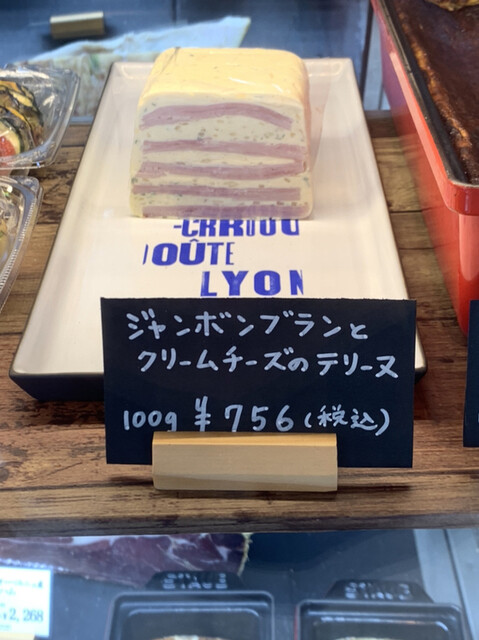 -CRROU
OÛTE
LYON
ジャンボンブランと
クリームチーズのテリーヌ
100g ¥756(税込)
2,268
STAUB
STAUB